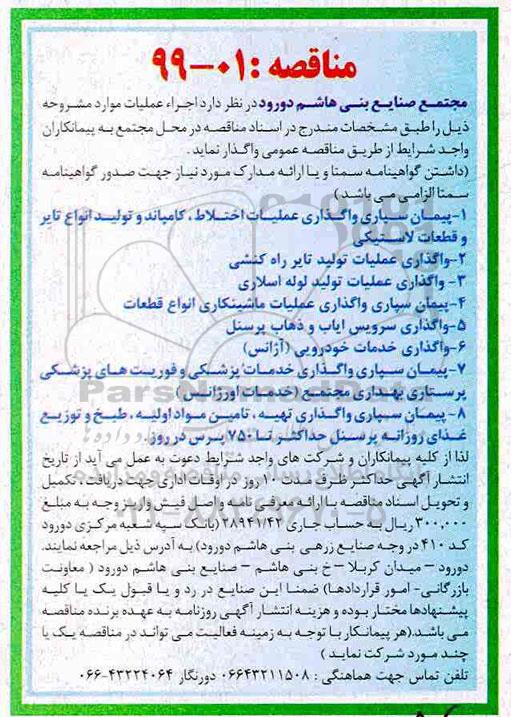 مناقصه : ۰۱-۹۹
مجتمع صنایع بنی هاشم دورود در نظر دارد اجراء عملیات موارد مشروحه
ذیل را طبق مشخصات مندرج در اسناد مناقصه در محل مجتمع به پیمانکاران
واجد شرایط از طریق مناقصه عمومی واگذار نماید.
(داشتن گواهینامه سمتا و یا ارائه مدارک مورد نیاز جهت صدور گواهینامه
سمتا الزامی می باشد)
۱-پیمان سپاری واگذاری عملیات اختلاط، کامپاند و تولید انواع تایر
و قطعات لاستیکی
۲-واگذاری عملیات تولید تایر راه کنشی
۳- واگذاری عملیات تولید لوله اسلاری
۴-پیمان سپاری واگذاری عملیات ماشینکاری انواع قطعات
۵-واگذاری سرویس ایاب و ذهاب پرسنل
۶-واگذاری خدمات خودرویی (آژانس)
۷-پیمان سپاری واگذاری خدمات پزشکی و فوریت های پزشکی
پرستاری بهداری مجتمع (خدمات اورژانس)
۸- پیمان سپاری واگذاری تهیه، تامین مواد اولیه، طبخ و توزیع
غذای روزانه پرسنل حداکثر تا ۷۵۰ پرس در روز.
لذا از کلیه پیمانکاران و شرکت های واجد شرایط دعوت به عمل می آید از تاریخ
انتشار آگهی حداکثر ظرف مدت ۱۰ روز در اوقات اداری جهت دریافت، تکمیل
و تحویل اسناد مناقصه با ارائه معرفی نامه و اصل فیش واریز وجه به مبلغ
۳۰۰,۰۰۰ ریال به حساب جاری ۲۸۹۴۱/۴۲ (بانک سپه شعبه مرکزی دورود
کد ۴۱۰ در وجه صنایع زرهی بنی هاشم دورود) به آدرس ذیل مراجعه نمایند.
دورود - میدان کربلا - خ بنی هاشم - صنایع بنی هاشم دورود (معاونت
بازرگانی- امور قراردادها) ضمنا این صنایع در رد و یا قبول یک یا کلیه
پیشنهادها مختار بوده و هزینه انتشار آگهی روزنامه به عهده برنده مناقصه
می باشد.(هر پیمانکار با توجه به زمینه فعالیت می تواند در مناقصه یک یا
چند مورد شرکت نماید)
تلفن تماس جهت هماهنگی : ۰۶۶۴۳۲۱۱۵۰۸ دورنگار ۴۳۲۲۴۰۶۴-۰۶۶
ParsNamadData